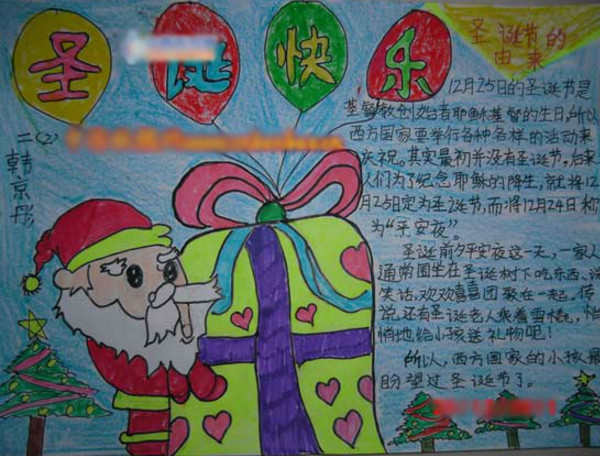 圣诞快乐
圣诞节的
由来
二(2)
韩京彤
12月25日的圣诞节是
基督教创始者耶稣基督的生日,所以
西方国家要举行各种各样的活动来
庆祝。其实最初并没有圣诞节,后来
人们为了纪念耶稣的降生,就将12
月25日定为圣诞节,而将12月24日称
为“平安夜”
圣诞前夕平安夜这一天,一家人
通常围坐在圣诞树下吃东西、说
笑话,欢欢喜喜团聚在一起。传
说,还有圣诞老人乘着雪橇,悄
悄地给小孩送礼物呢!
所以,西方国家的小孩最
盼望过圣诞节了。